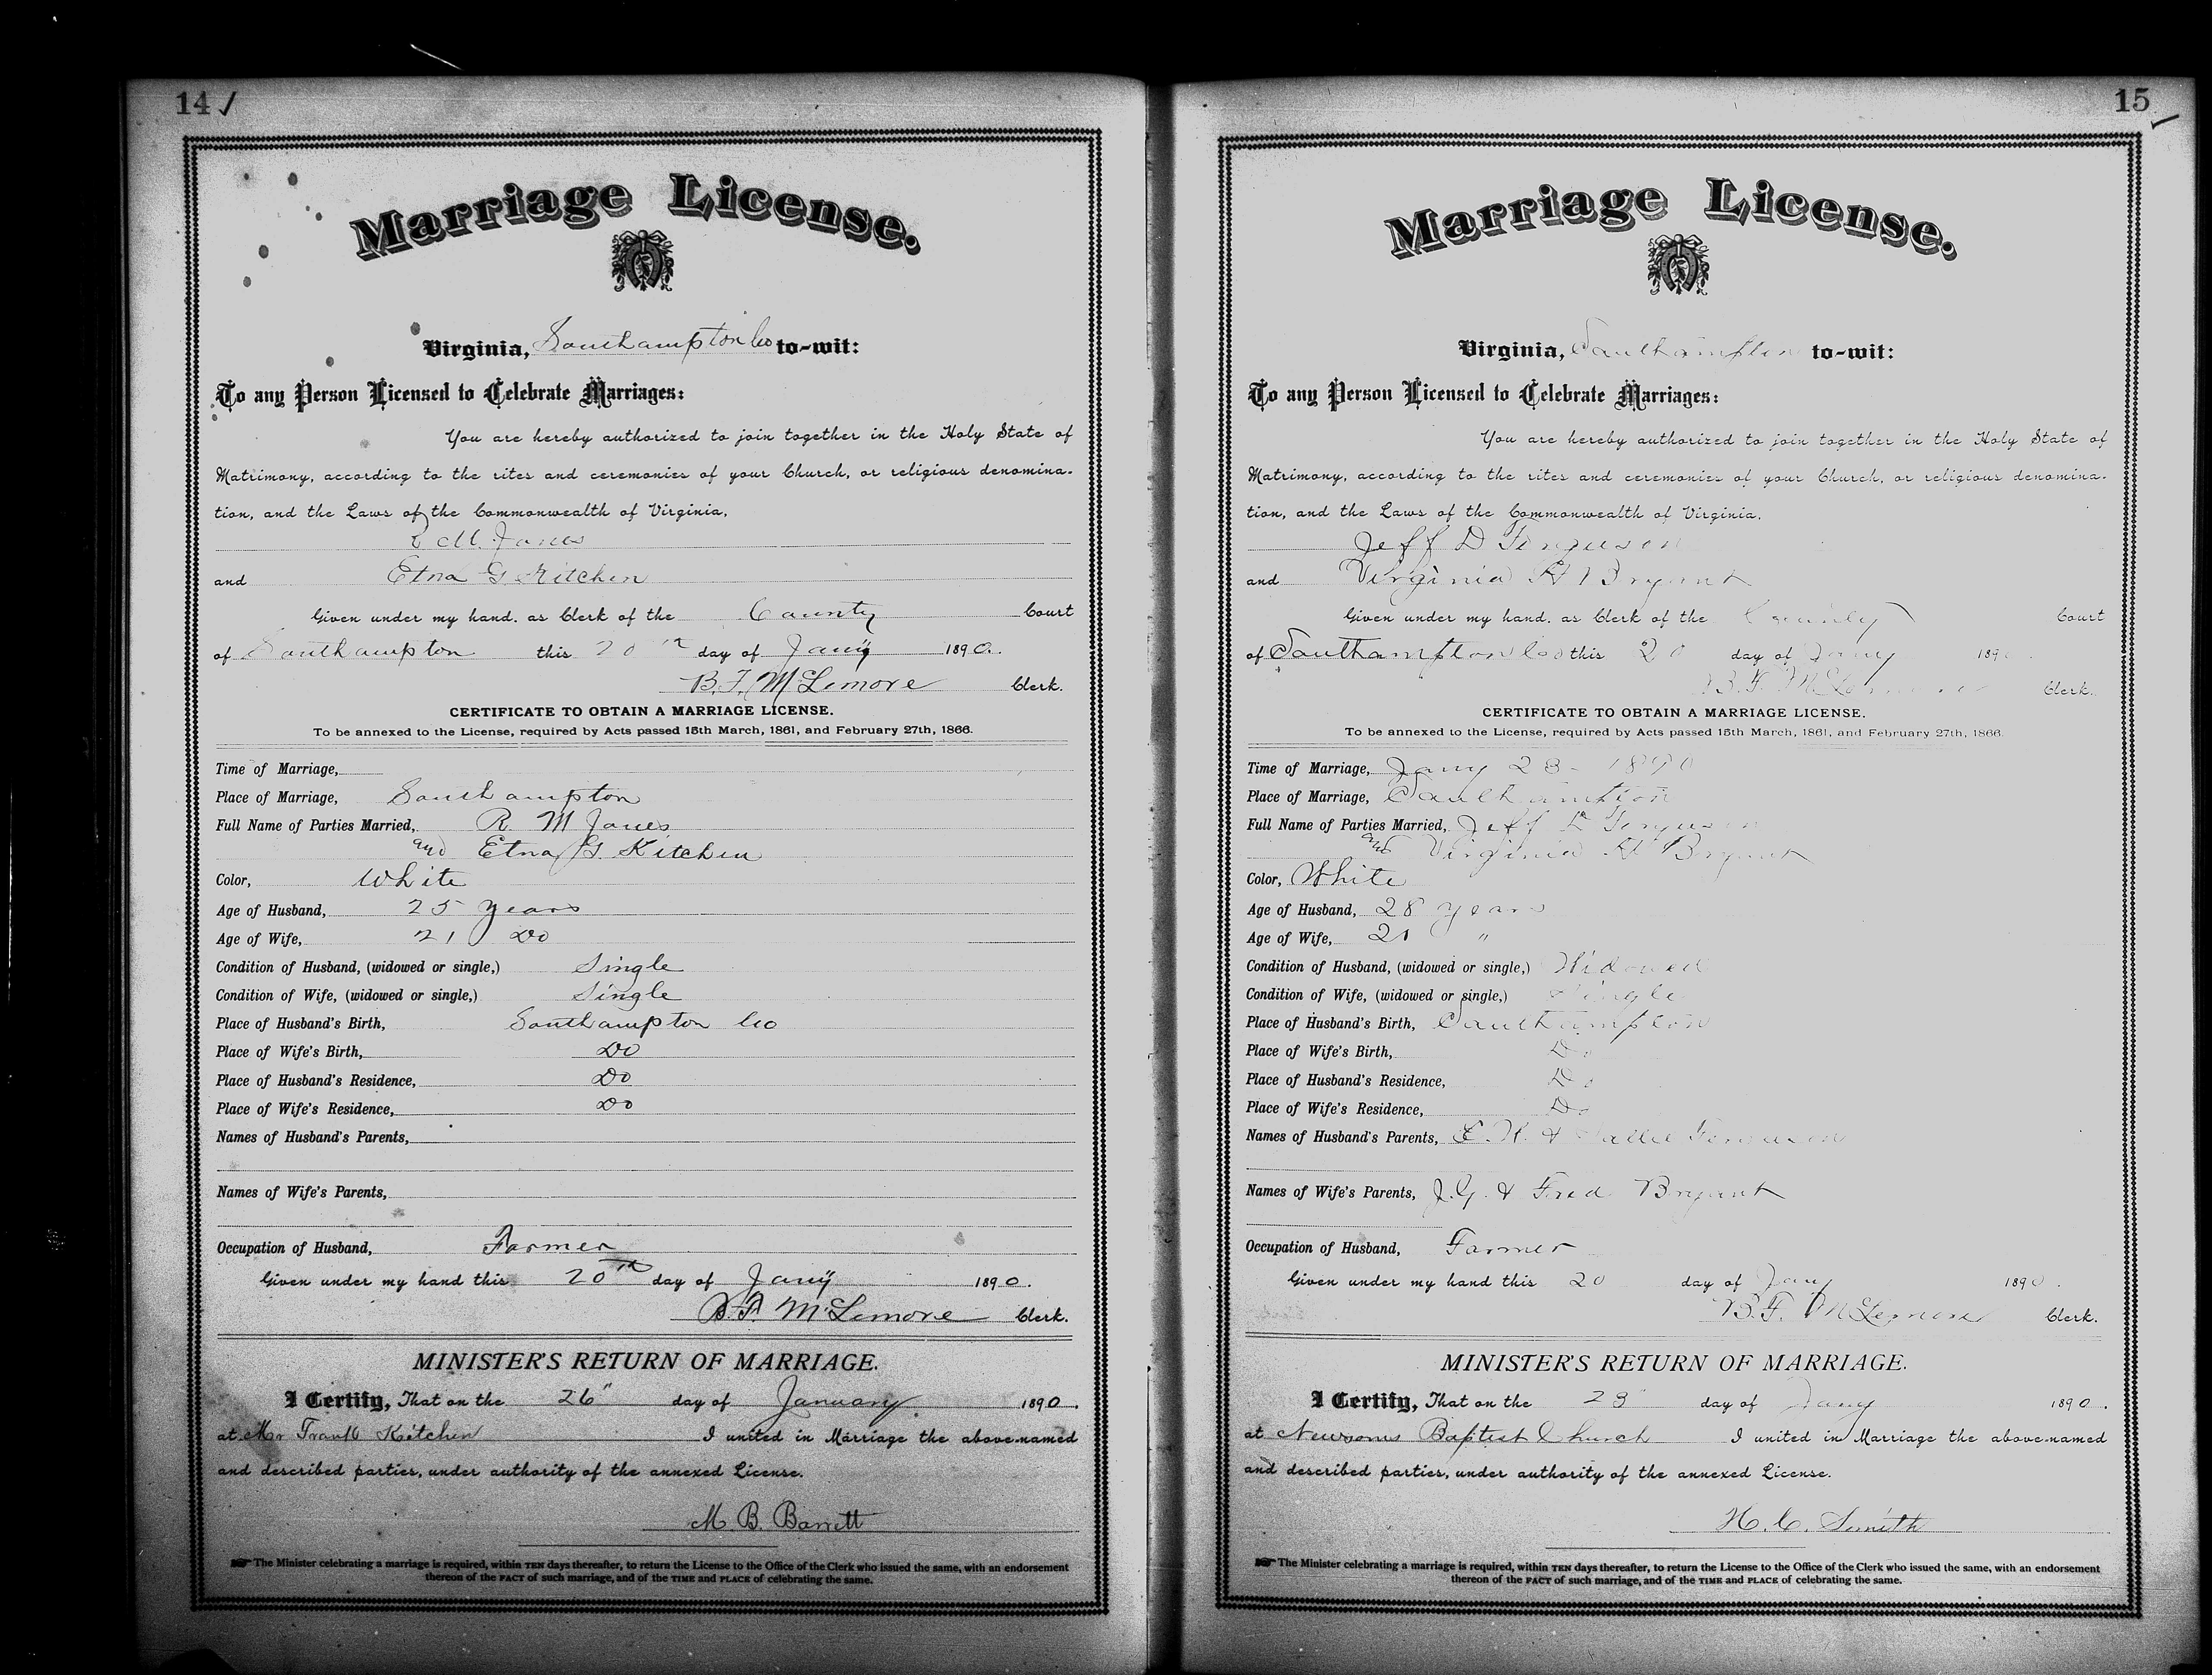 14
Marriage License.
Virginia, Southampton Co to-wit:
To any Person Licensed to Celebrate Marriages:
You are hereby authorized to join together in the Holy State of
Matrimony, according to the rites and ceremonies of your Church, or religious denomina-
tion, and the Laws of the Commonwealth of Virginia,
M. Jones
and Etna G. Kitchen
Given under my hand, as Clerk of the County Court
of Southampton this 20th day of Jany 1890.
B. F. McLemore Clerk.
CERTIFICATE TO OBTAIN A MARRIAGE LICENSE.
To be annexed to the License, required by Acts passed 15th March, 1861, and February 27th, 1866.
Time of Marriage,
Place of Marriage, Southampton
Full Name of Parties Married, R. M Jones
and Etna G. Kitchen
Color, White
Age of Husband, 25 years
Age of Wife, 21 Do
Condition of Husband, (widowed or single,) Single
Condition of Wife, (widowed or single,) Single
Place of Husband's Birth, Southampton Co
Place of Wife's Birth, Do
Place of Husband's Residence, Do
Place of Wife's Residence, Do
Names of Husband's Parents,
Names of Wife's Parents,
Occupation of Husband, Farmer
Given under my hand this 20th day of Jany 1890.
B. F. McLemore Clerk.
MINISTER'S RETURN OF MARRIAGE.
I Certify, That on the 26" day of January 1890.
at Mr Frank Kitchen I united in Marriage the above-named
and described parties, under authority of the annexed License.
M. B. Barrett
The Minister celebrating a marriage is required, within TEN days thereafter, to return the License to the Office of the Clerk who issued the same, with an endorsement
thereon of the FACT of such marriage, and of the TIME and PLACE of celebrating the same.
15
Marriage License.
Virginia, Southampton to-wit:
To any Person Licensed to Celebrate Marriages:
You are hereby authorized to join together in the Holy State of
Matrimony, according to the rites and ceremonies of your Church, or religious denomina-
tion, and the Laws of the Commonwealth of Virginia,
Jeff D Ferguson
and Virginia H Bryant
Given under my hand, as Clerk of the County Court
of Southampton Co this 20 day of Jany 1890
B. F. McLemore Clerk.
CERTIFICATE TO OBTAIN A MARRIAGE LICENSE.
To be annexed to the License, required by Acts passed 15th March, 1861, and February 27th, 1866.
Time of Marriage, Jany 23 - 1890
Place of Marriage, Southampton
Full Name of Parties Married, Jeff D Ferguson
and Virginia H Bryant
Color, White
Age of Husband, 28 years
Age of Wife, 21 "
Condition of Husband, (widowed or single,) Widowed
Condition of Wife, (widowed or single,) Single
Place of Husband's Birth, Southampton
Place of Wife's Birth, Do
Place of Husband's Residence, Do
Place of Wife's Residence, Do
Names of Husband's Parents, & Sallie Ferguson
Names of Wife's Parents, J. G. & Fred Bryant
Occupation of Husband, Farmer
Given under my hand this 20 day of Jany 1890.
B. F. McLemore Clerk.
MINISTER'S RETURN OF MARRIAGE.
I Certify, That on the 23" day of Jany 1890.
at Newsoms Baptist Church I united in Marriage the above-named
and described parties, under authority of the annexed License.
H. C. Smith
The Minister celebrating a marriage is required, within TEN days thereafter, to return the License to the Office of the Clerk who issued the same, with an endorsement
thereon of the FACT of such marriage, and of the TIME and PLACE of celebrating the same.